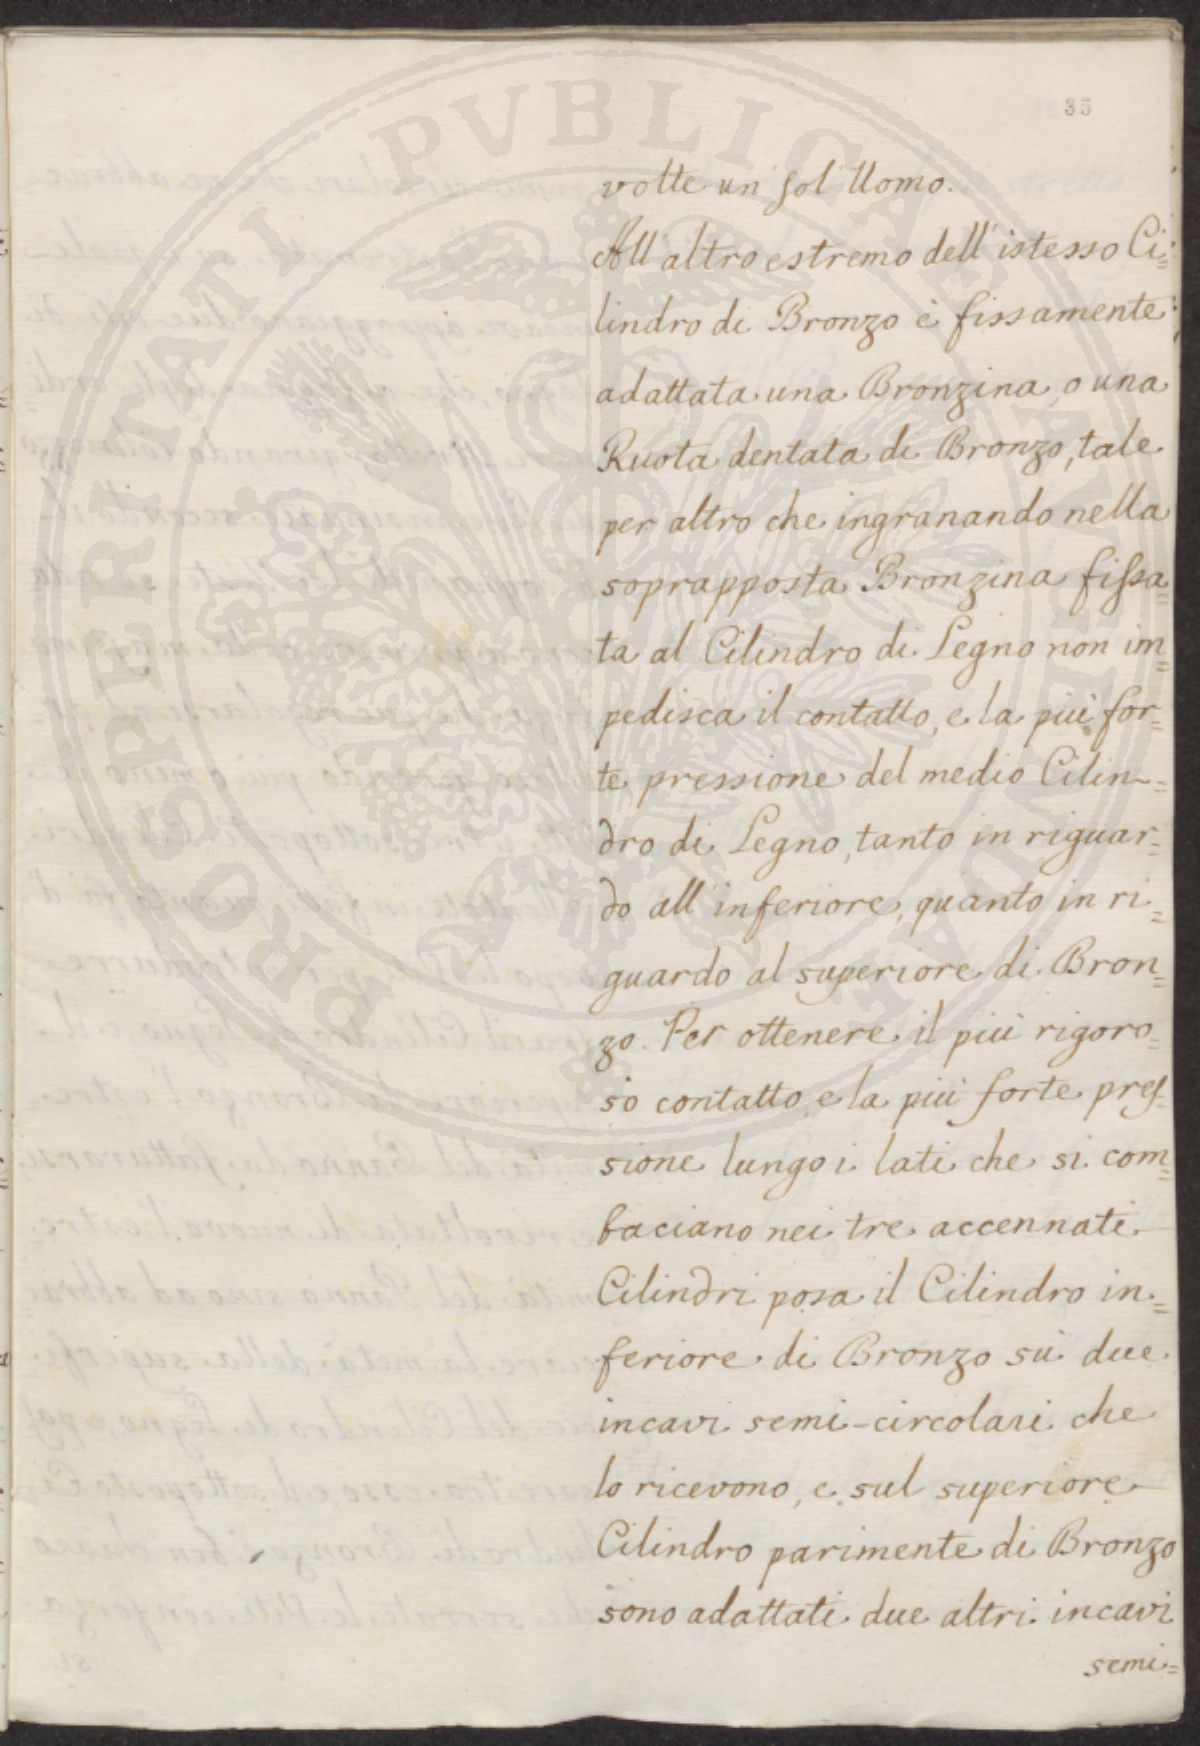 35
volte un sol Uomo.
All'altro estremo dell'istesso Ci=
lindro di Bronzo è fissamente
adattata una Bronzina, o una
Ruota dentata di Bronzo, tale
per altro che ingranando nella
soprapposta Bronzina fissa=
ta al Cilindro di Legno non im=
pedisca il contatto, e la più for=
te pressione del medio Cilin=
dro di Legno, tanto in riguar=
do all'inferiore, quanto in ri=
guardo al superiore di Bron=
zo. Per ottenere il più rigoro=
so contatto, e la più forte pres=
sione lungo i lati che si com=
baciano nei tre accennati
Cilindri posa il Cilindro in=
feriore di Bronzo sù due
incavi semi-circolari che
lo ricevono, e sul superiore
Cilindro parimente di Bronzo
sono adattati due altri incavi
semi=
PROSPERITATI PVBLICAE AVGENDAE